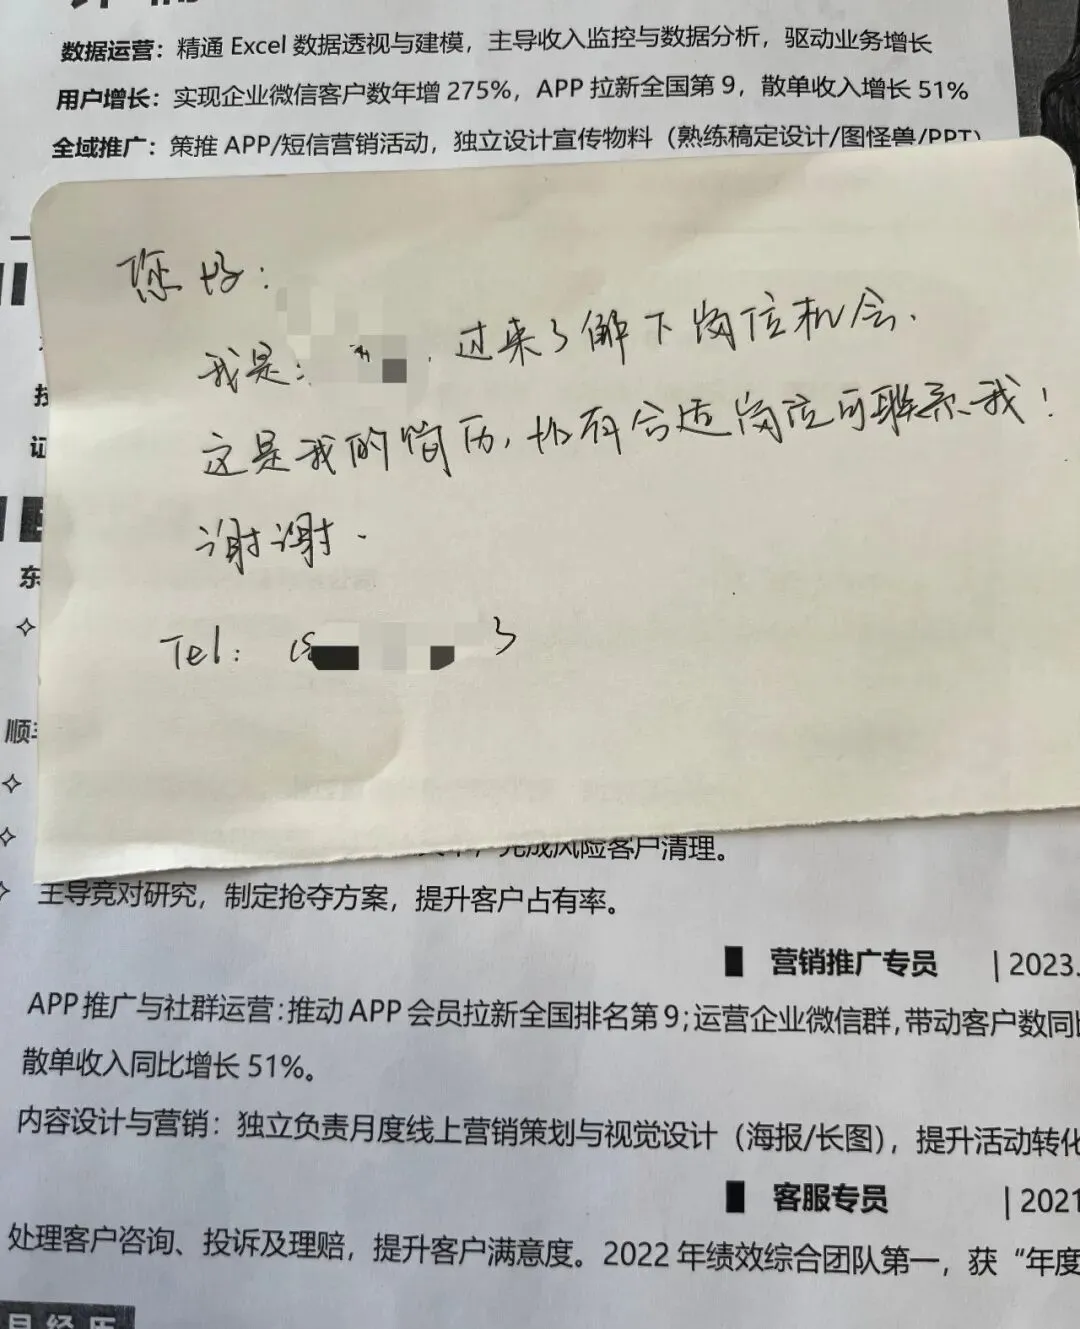 数据运营：精通 Excel 数据透视与建模，主导收入监控与数据分析，驱动业务增长
用户增长：实现企业微信客户数年增 275%，APP 拉新全国第 9，散单收入增长 51%
全域推广：策推 APP/短信营销活动，独立设计宣传物料（熟练稿定设计/图怪兽/PPT）
您好：
我是： ，过来了解下岗位机会．
这是我的简历，如有合适岗位可联系我！
谢谢．
Tel: 3
东
顺丰
完成风险客户清理。
主导竞对研究，制定抢夺方案，提升客户占有率。
营销推广专员 | 2023.
APP 推广与社群运营：推动 APP 会员拉新全国排名第 9；运营企业微信群，带动客户数同比
散单收入同比增长 51%。
内容设计与营销：独立负责月度线上营销策划与视觉设计（海报/长图），提升活动转化
客服专员 | 2021
处理客户咨询、投诉及理赔，提升客户满意度。2022 年绩效综合团队第一，获“年度
经历